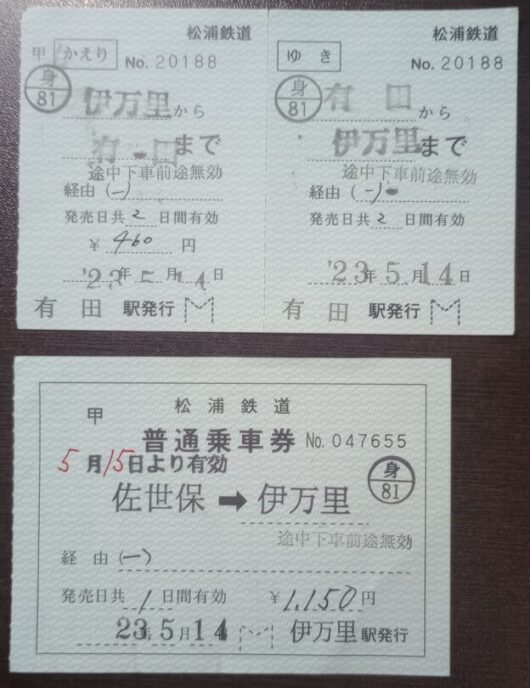 松浦鉄道
甲 かえり No. 20188
身
81
伊万里から
有田まで
途中下車前途無効
経由 (一)
発売日共 2 日間有効
¥ 460 円
'23年5月14日
有田 駅発行
松浦鉄道
ゆき No. 20188
身
81
有田から
伊万里まで
途中下車前途無効
経由 (一)
発売日共 2 日間有効
'23年5月14日
有田 駅発行
甲 松浦鉄道
普通乗車券 No. 047655
5月15日より有効
身
81
佐世保 ➡ 伊万里
途中下車前途無効
経由 (一)
発売日共 1 日間有効 ¥1,150円
23年5月14 伊万里駅発行